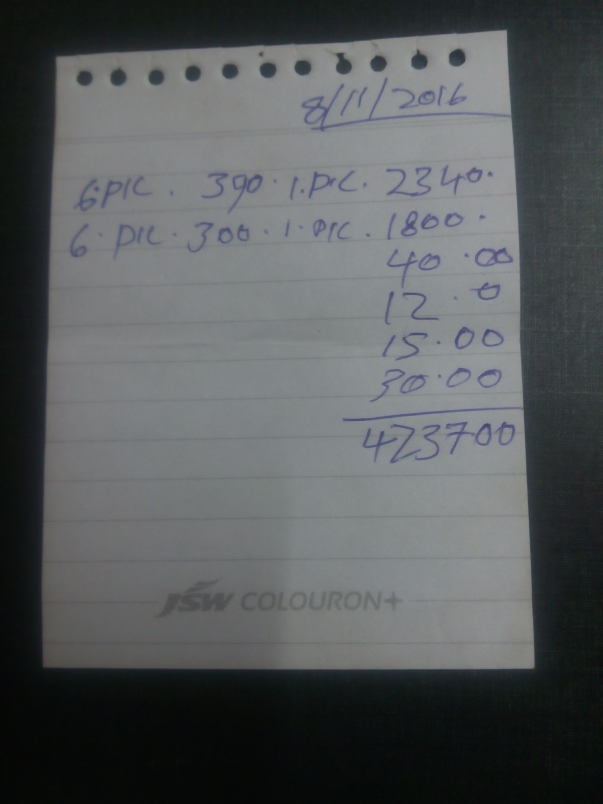 8/11/2016
6.pic. 390.1.pic. 2340.
6.pic.300.1.pic.1800.
40.00
12.0
15.00
30.00
423700
JSW COLOURON+